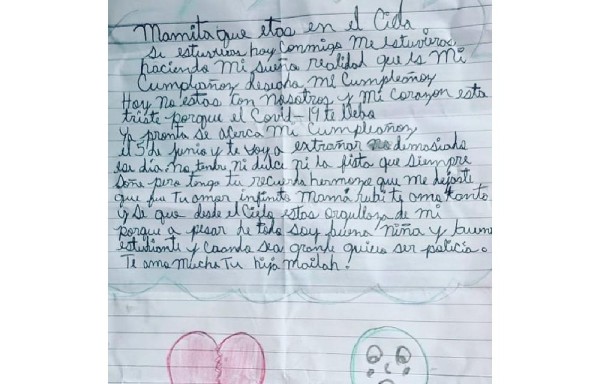 Mamita que etas en el Cielo.
Si estuvieras hoy Conmigo Me estuvieras
haciendo Mi sueña realidad que es Mi
Cumpleañoz desdcha Mi Cumpleañoz
Hoy no estas con Nosotros y Mi Corazon esta
triste porque el Covid-19 te llebo
Ya pronto se acerca Mi Cumpleañoz
el 5 de junio y te voy a extrañar demasiado
ese día no tendre ni dulce ni la fista que siempre
soñe pero tengo tu recuerdo hermozo que me dejaste
que fue Tu amor infinito Mamá rubi te amo tanto
y Se que desde el Cielo estas orgulloza de mi
porque a pesar de todo soy buena niña y buena
estudiante y Cuando sea grande quiero ser policía.
Te amo Mucho Tu hija Mailah!